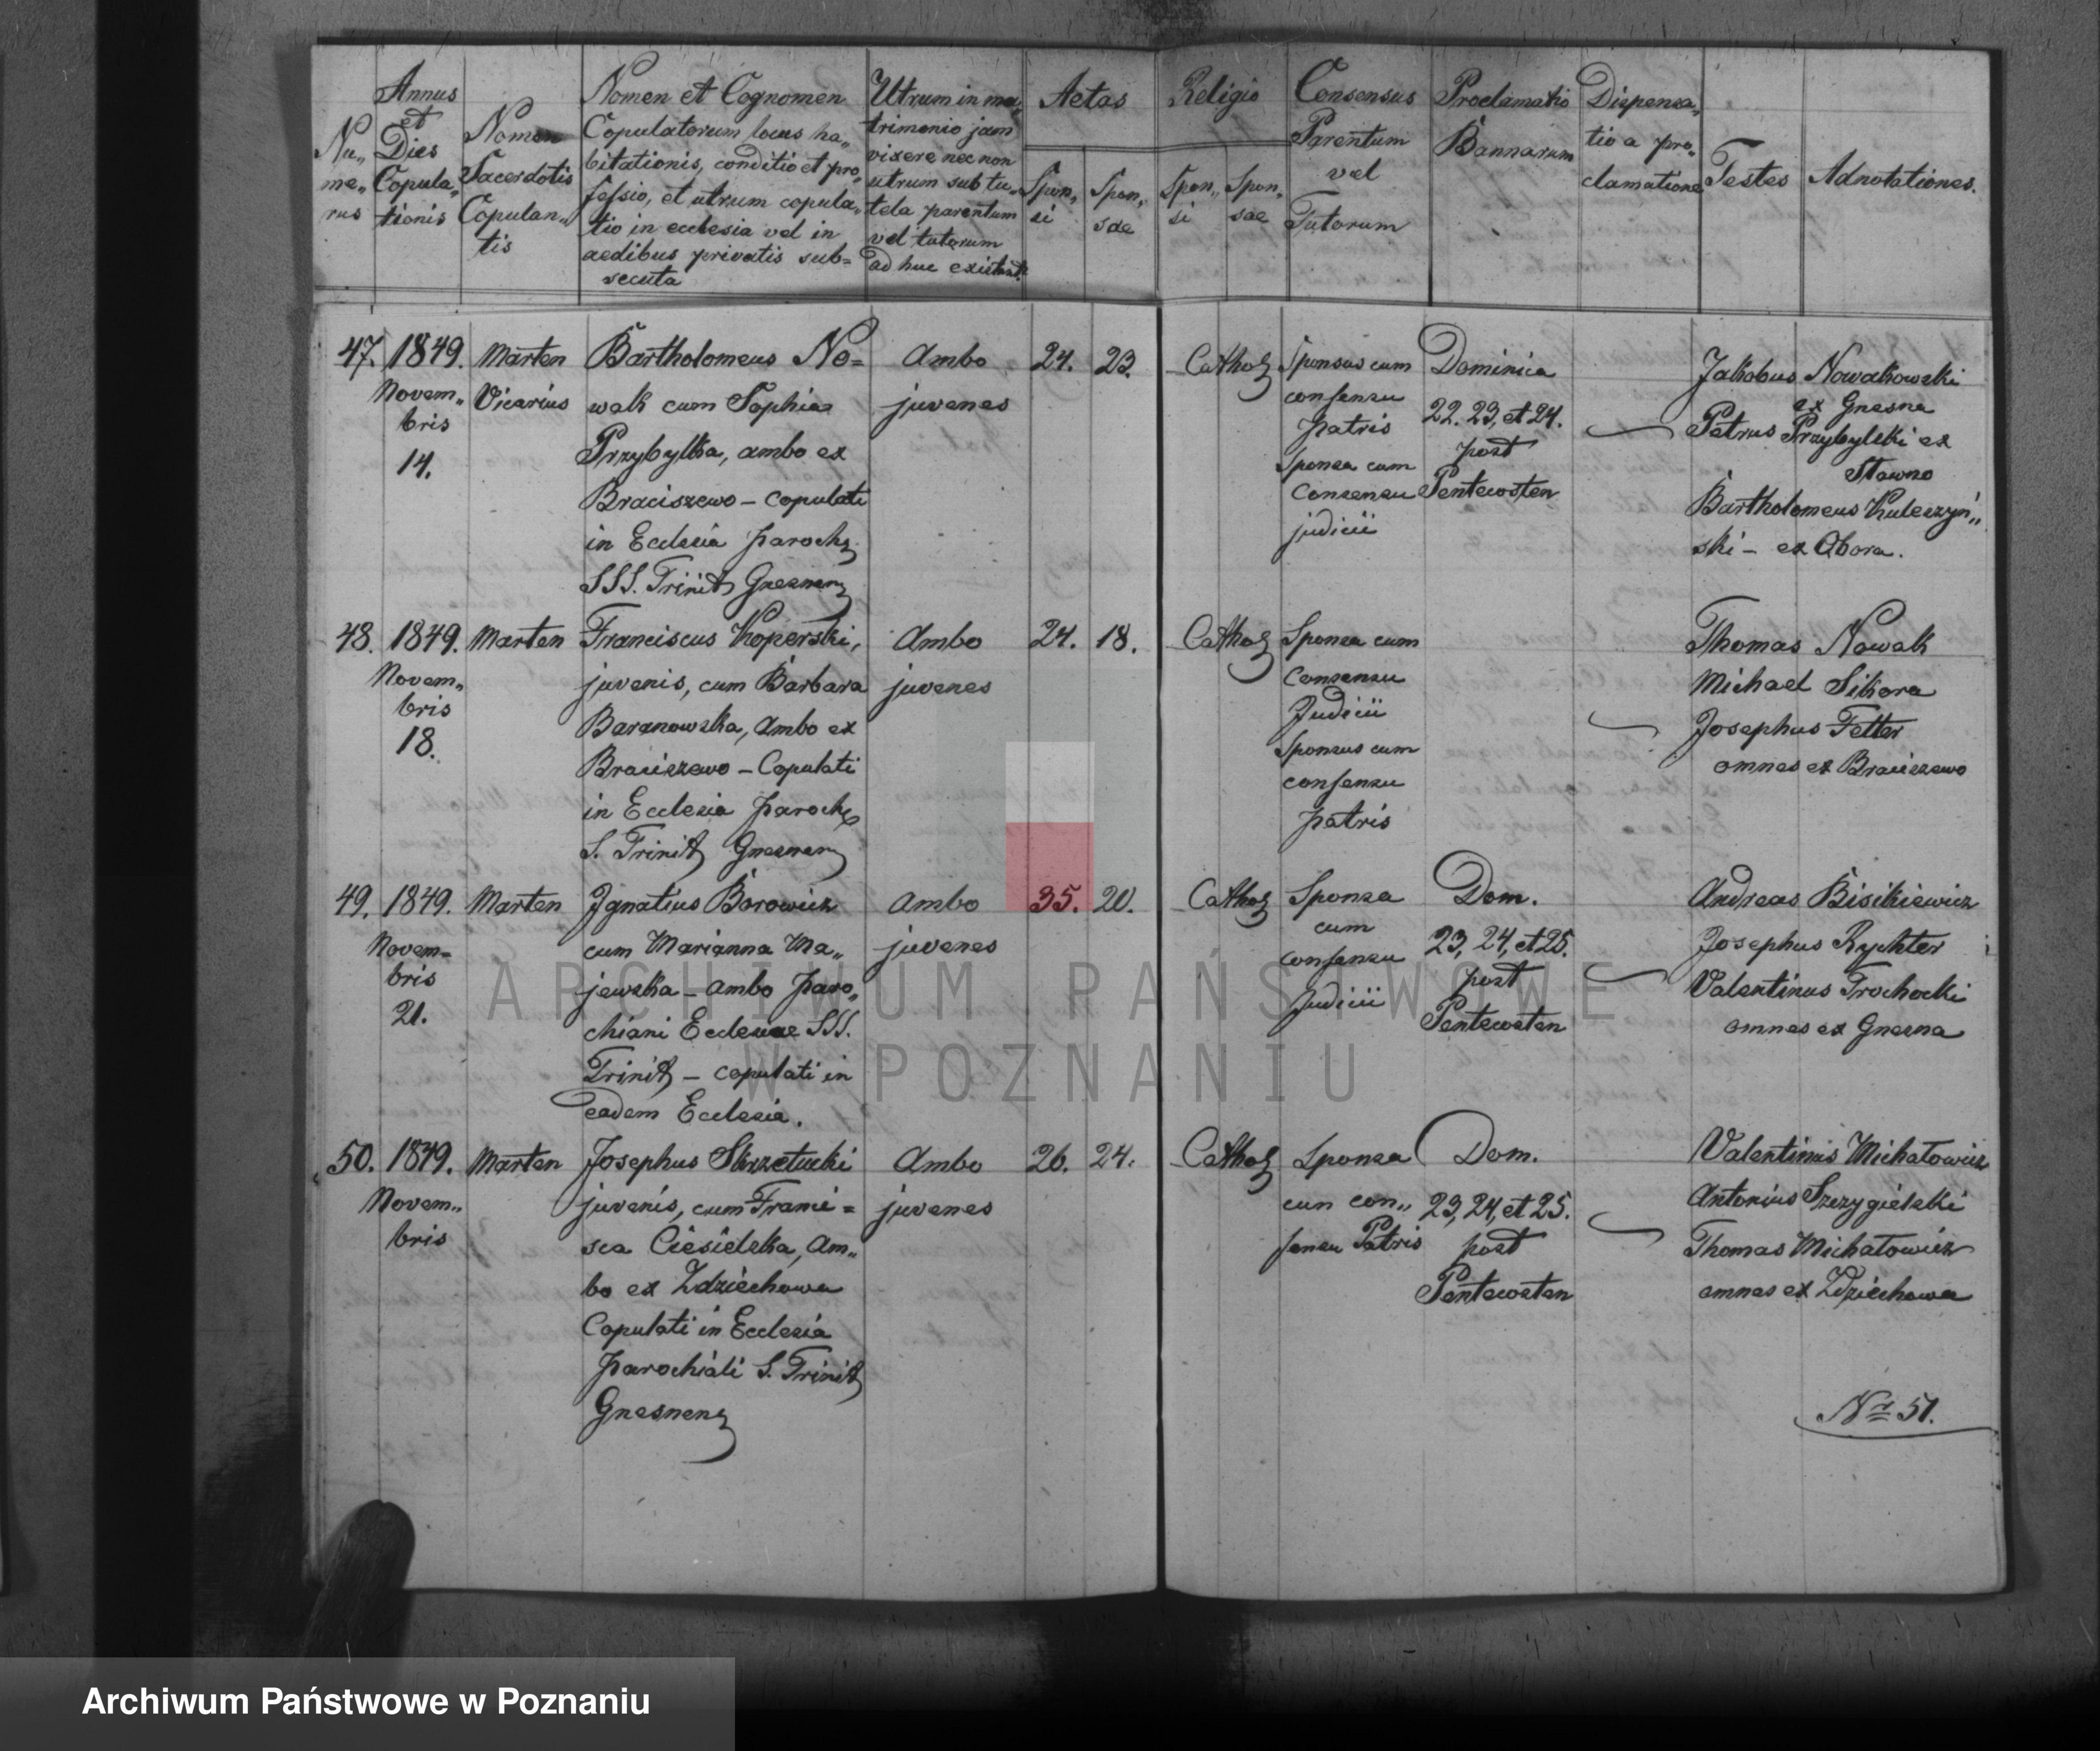 Nu„
me„
rus
Annus
et
Dies
Copula„
tionis
Nomen
Sacerdotis
Copulan„
tis
Nomen et Cognomen
Copulatorum locus ha„
bitationis, conditio et pro„
fessio, et utrum copula„
tio in ecclesia vel in
aedibus privatis sub=
secuta
Utrum in ma„
trimonio jam
vixere nec non
utrum sub tu„
tela parentum
vel tutorum
ad huc existant.
Aetas
Spon„
si
Spon„
sae
Religio
Spon„
si
Spon„
sae
Consensus
Parentum
vel
Tutorum
Proclamatio
Bannarum
Dispensa„
tio a pro„
clamatione
Testes
Adnotationes.
47.
1849.
Novem„
bris
14.
Marten
Vicarius
Bartholomeus No=
wak cum Sophia
Przybylka, ambo ex
Braciszewo – copulati
in Ecclesia paroch
SSS. Trinit Gnesnen
Ambo
juvenes
24.
23.
Cathol
Sponsus cum
consensu
patris
Sponsa cum
Consensu
judicii
Dominica
22. 23, et 24.
post
Pentecosten
Jakobus Nowakowski
ex Gnesna
Petrus Przybylski ex
Sławno
Bartholomeus Kuleszyń„
ski – ex Obora.
48.
1849.
Novem„
bris
18.
Marten
Franciscus Koperski,
juvenis, cum Barbara
Baranowska, ambo ex
Braciszewo – Copulati
in Ecclesia paroch
S. Trinit Gnesnen
Ambo
juvenes
24.
18.
Cathol
Sponsa cum
Consensu
Judicii
Sponsus cum
consensu
patris
Thomas Nowak
Michael Sikora
Josephus Fetter
omnes ex Braciszewo
49.
1849.
Novem=
bris
21.
Marten
Ignatius Borowicz
cum Marianna Ma„
jewska – ambo paro„
chiani Ecclesiae SSS.
Trinit – copulati in
eadem Ecclesia.
Ambo
juvenes
35.
20.
Cathol
Sponsa
cum
consensu
Judicii
Dom.
23, 24, et 25.
post
Pentecosten
Andreas Bisikiewicz
Josephus Rychter
Valentinus Trochocki
omnes ex Gnesna
50.
1849.
Novem„
bris
Marten
Josephus Skrzetucki
juvenis, cum Franci=
sca Ciesielska, Am„
bo ex Zdziechowa
Copulati in Ecclesia
parochiali S. Trinit
Gnesnen
Ambo
juvenes
26.
24.
Cathol
Sponsa
cun con„
sensu Patris
Dom.
23, 24, et 25.
post
Pentecosten
Valentinus Michałowicz
Antonius Szczygielski
Thomas Michałowicz
omnes ex Zdziechowa
Nr 51.
ARCHIWUM PAŃSTWOWE
W POZNANIU
Archiwum Państwowe w Poznaniu